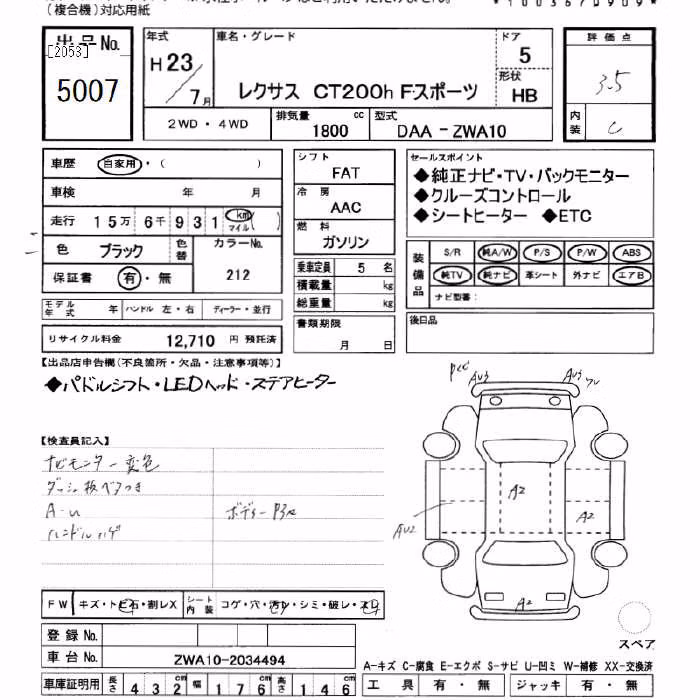 (複合機)対応用紙
出品No.
[2053]
5007
年式
H23
7月
車名・グレード
レクサス CT200h Fスポーツ
ドア
5
形状
HB
評価点
3.5
内装
C
2WD・4WD
排気量
1800
cc
型式
DAA-ZWA10
車歴 自家用・( )
車検 年 月
走行 15万6千931 km マイル( )
色 ブラック
色替
カラーNo.
212
保証書 有・無
モデル年式 年 ハンドル 左・右 ディーラー・並行
リサイクル料金 12,710 円 預託済
シフト
FAT
冷房
AAC
燃料
ガソリン
乗車定員 5 名
積載量 kg
総重量 kg
書類期限
月 日
セールスポイント
◆純正ナビ・TV・バックモニター
◆クルーズコントロール
◆シートヒーター ◆ETC
装備品
S/R 純A/W P/S P/W ABS
純TV 純ナビ 革シート 外ナビ エアB
ナビ型番:
後日品
【出品店申告欄(不良箇所・欠品・注意事項等)】
◆パドルシフト・LEDヘッド・ステアヒーター
【検査員記入】
ナビモニター変色
ダッシュ板ベタつき
A-u
ハンドルハゲ
AU3
AU3
A2
A2
AU2
A2
FW キズ・トビ石・割レX
シート内装 コゲ・穴・汚レ・シミ・破レ・スレ
登録No.
車台No. ZWA10-2034494
車庫証明用 長さ 432cm 幅 176cm 高さ 146cm
スペア
A-キズ C-腐食 E-エクボ S-サビ U-凹ミ W-補修 XX-交換済
工具 有・無 ジャッキ 有・無